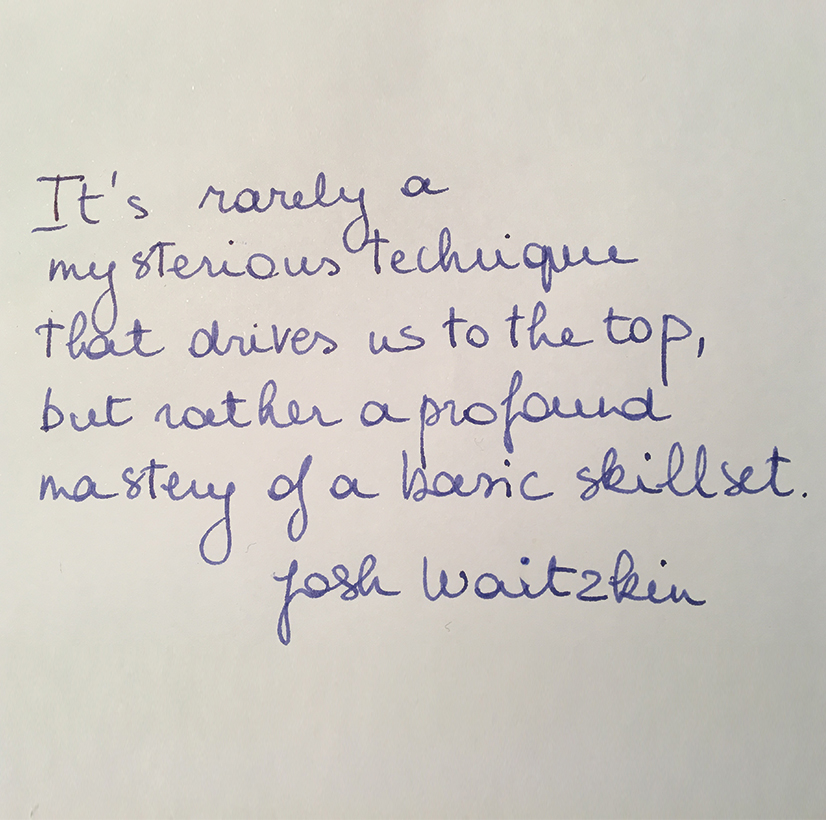 It's rarely a
mysterious technique
that drives us to the top,
but rather a profound
mastery of a basic skillset.
Josh Waitzkin